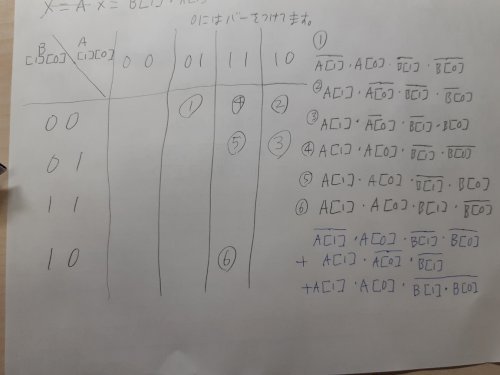 X = A X = B[1]
0にはバーをつけてます。
B [1][0] A [1][0]
0 0 | 0 1 | 1 1 | 1 0
0 0 ① ④ ②
0 1 ⑤ ③
1 1
1 0 ⑥
① A̅[̅1̅]̅・A[0]・B̅[̅1̅]̅・B̅[̅0̅]̅
② A[1]・A̅[̅0̅]̅・B̅[̅1̅]̅・B̅[̅0̅]̅
③ A[1]・A̅[̅0̅]̅・B̅[̅1̅]̅・B[0]
④ A[1]・A[0]・B̅[̅1̅]̅・B̅[̅0̅]̅
⑤ A[1]・A[0]・B̅[̅1̅]̅・B[0]
⑥ A[1]・A[0]・B[1]・B̅[̅0̅]̅
A̅[̅1̅]̅・A[0]・B̅[̅1̅]̅・B̅[̅0̅]̅
+ A[1]・A̅[̅0̅]̅・B̅[̅1̅]̅
+A[1]・A[0]・B̅[̅1̅]̅・̅B̅[̅0̅]̅